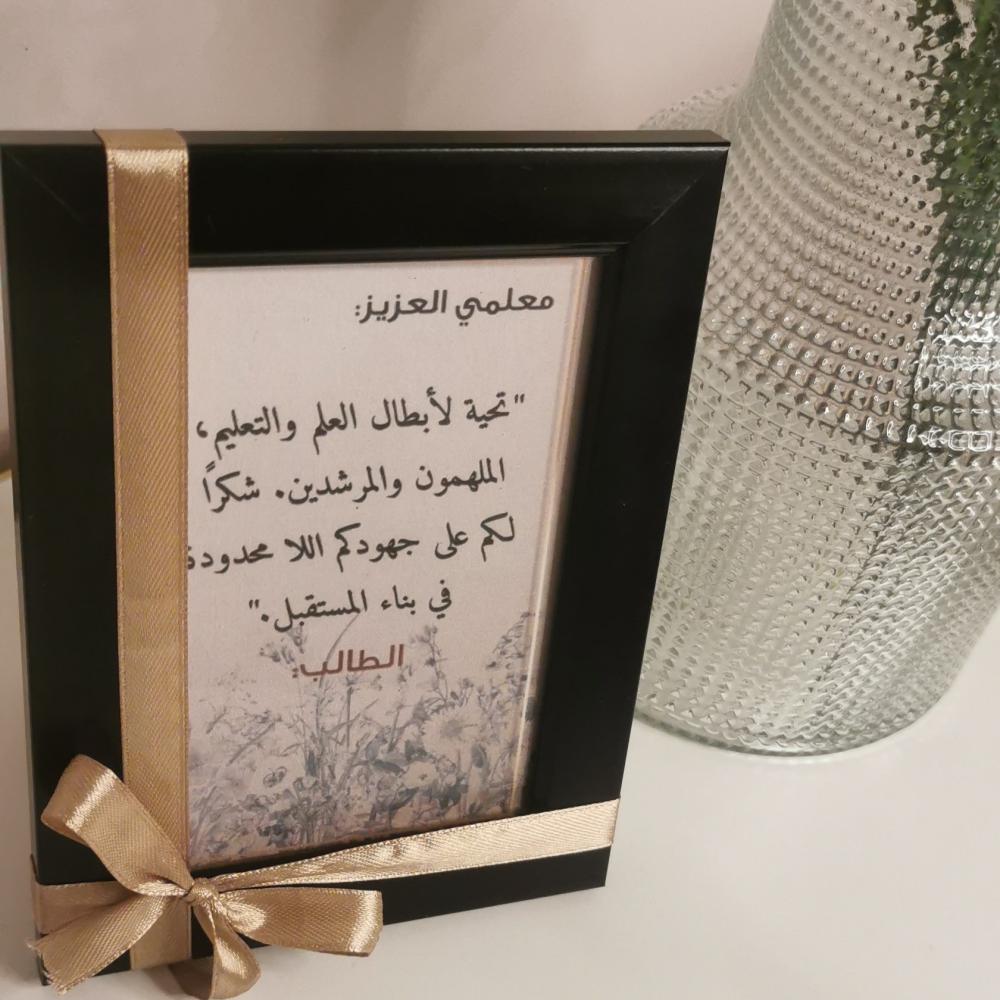 معلمي العزيز:
"تحية لأبطال العلم والتعليم،
الملهمون والمرشدين. شكراً
لكم على جهودكم اللا محدودة
في بناء المستقبل."
الطالب: